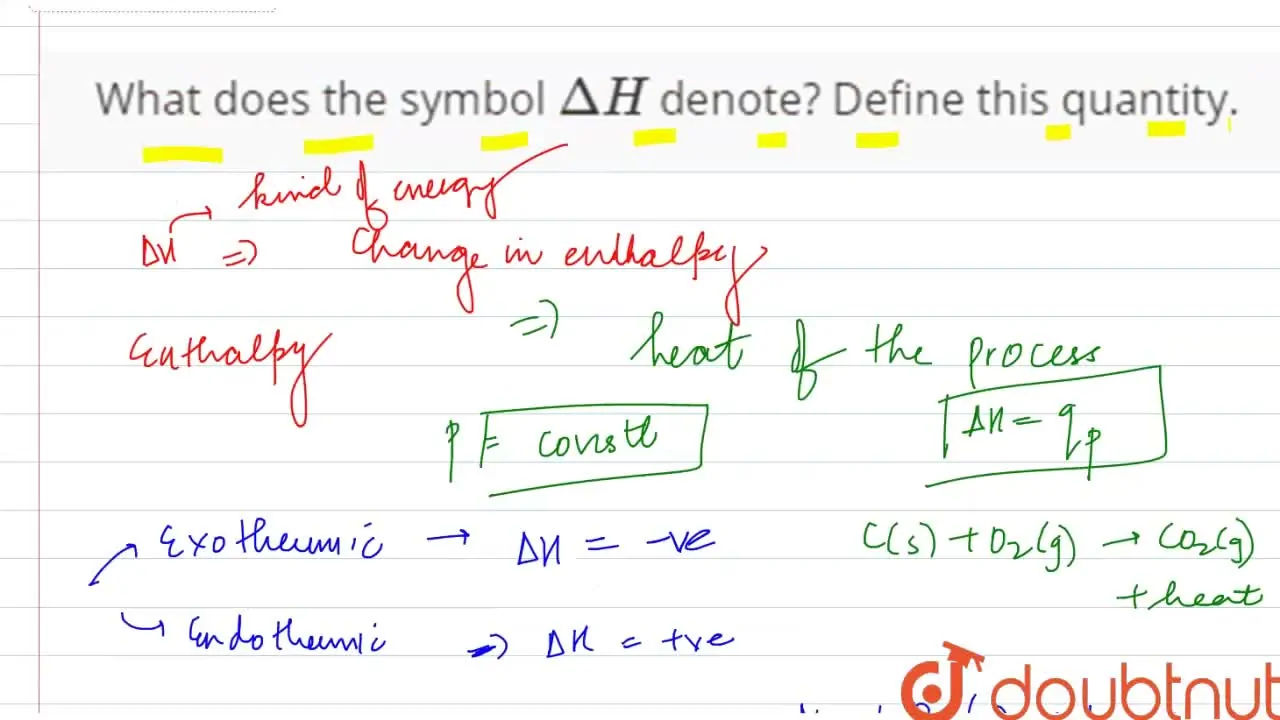 What does the symbol ΔH denote? Define this quantity.
kind of energy
ΔH ⇒ Change in enthalpy
Enthalpy ⇒ heat of the process
P = const
ΔH = qp
Exothermic → ΔH = -ve
C(s) + O2(g) → CO2(g)
+ heat
Endothermic ⇒ ΔH = +ve
doubtnut